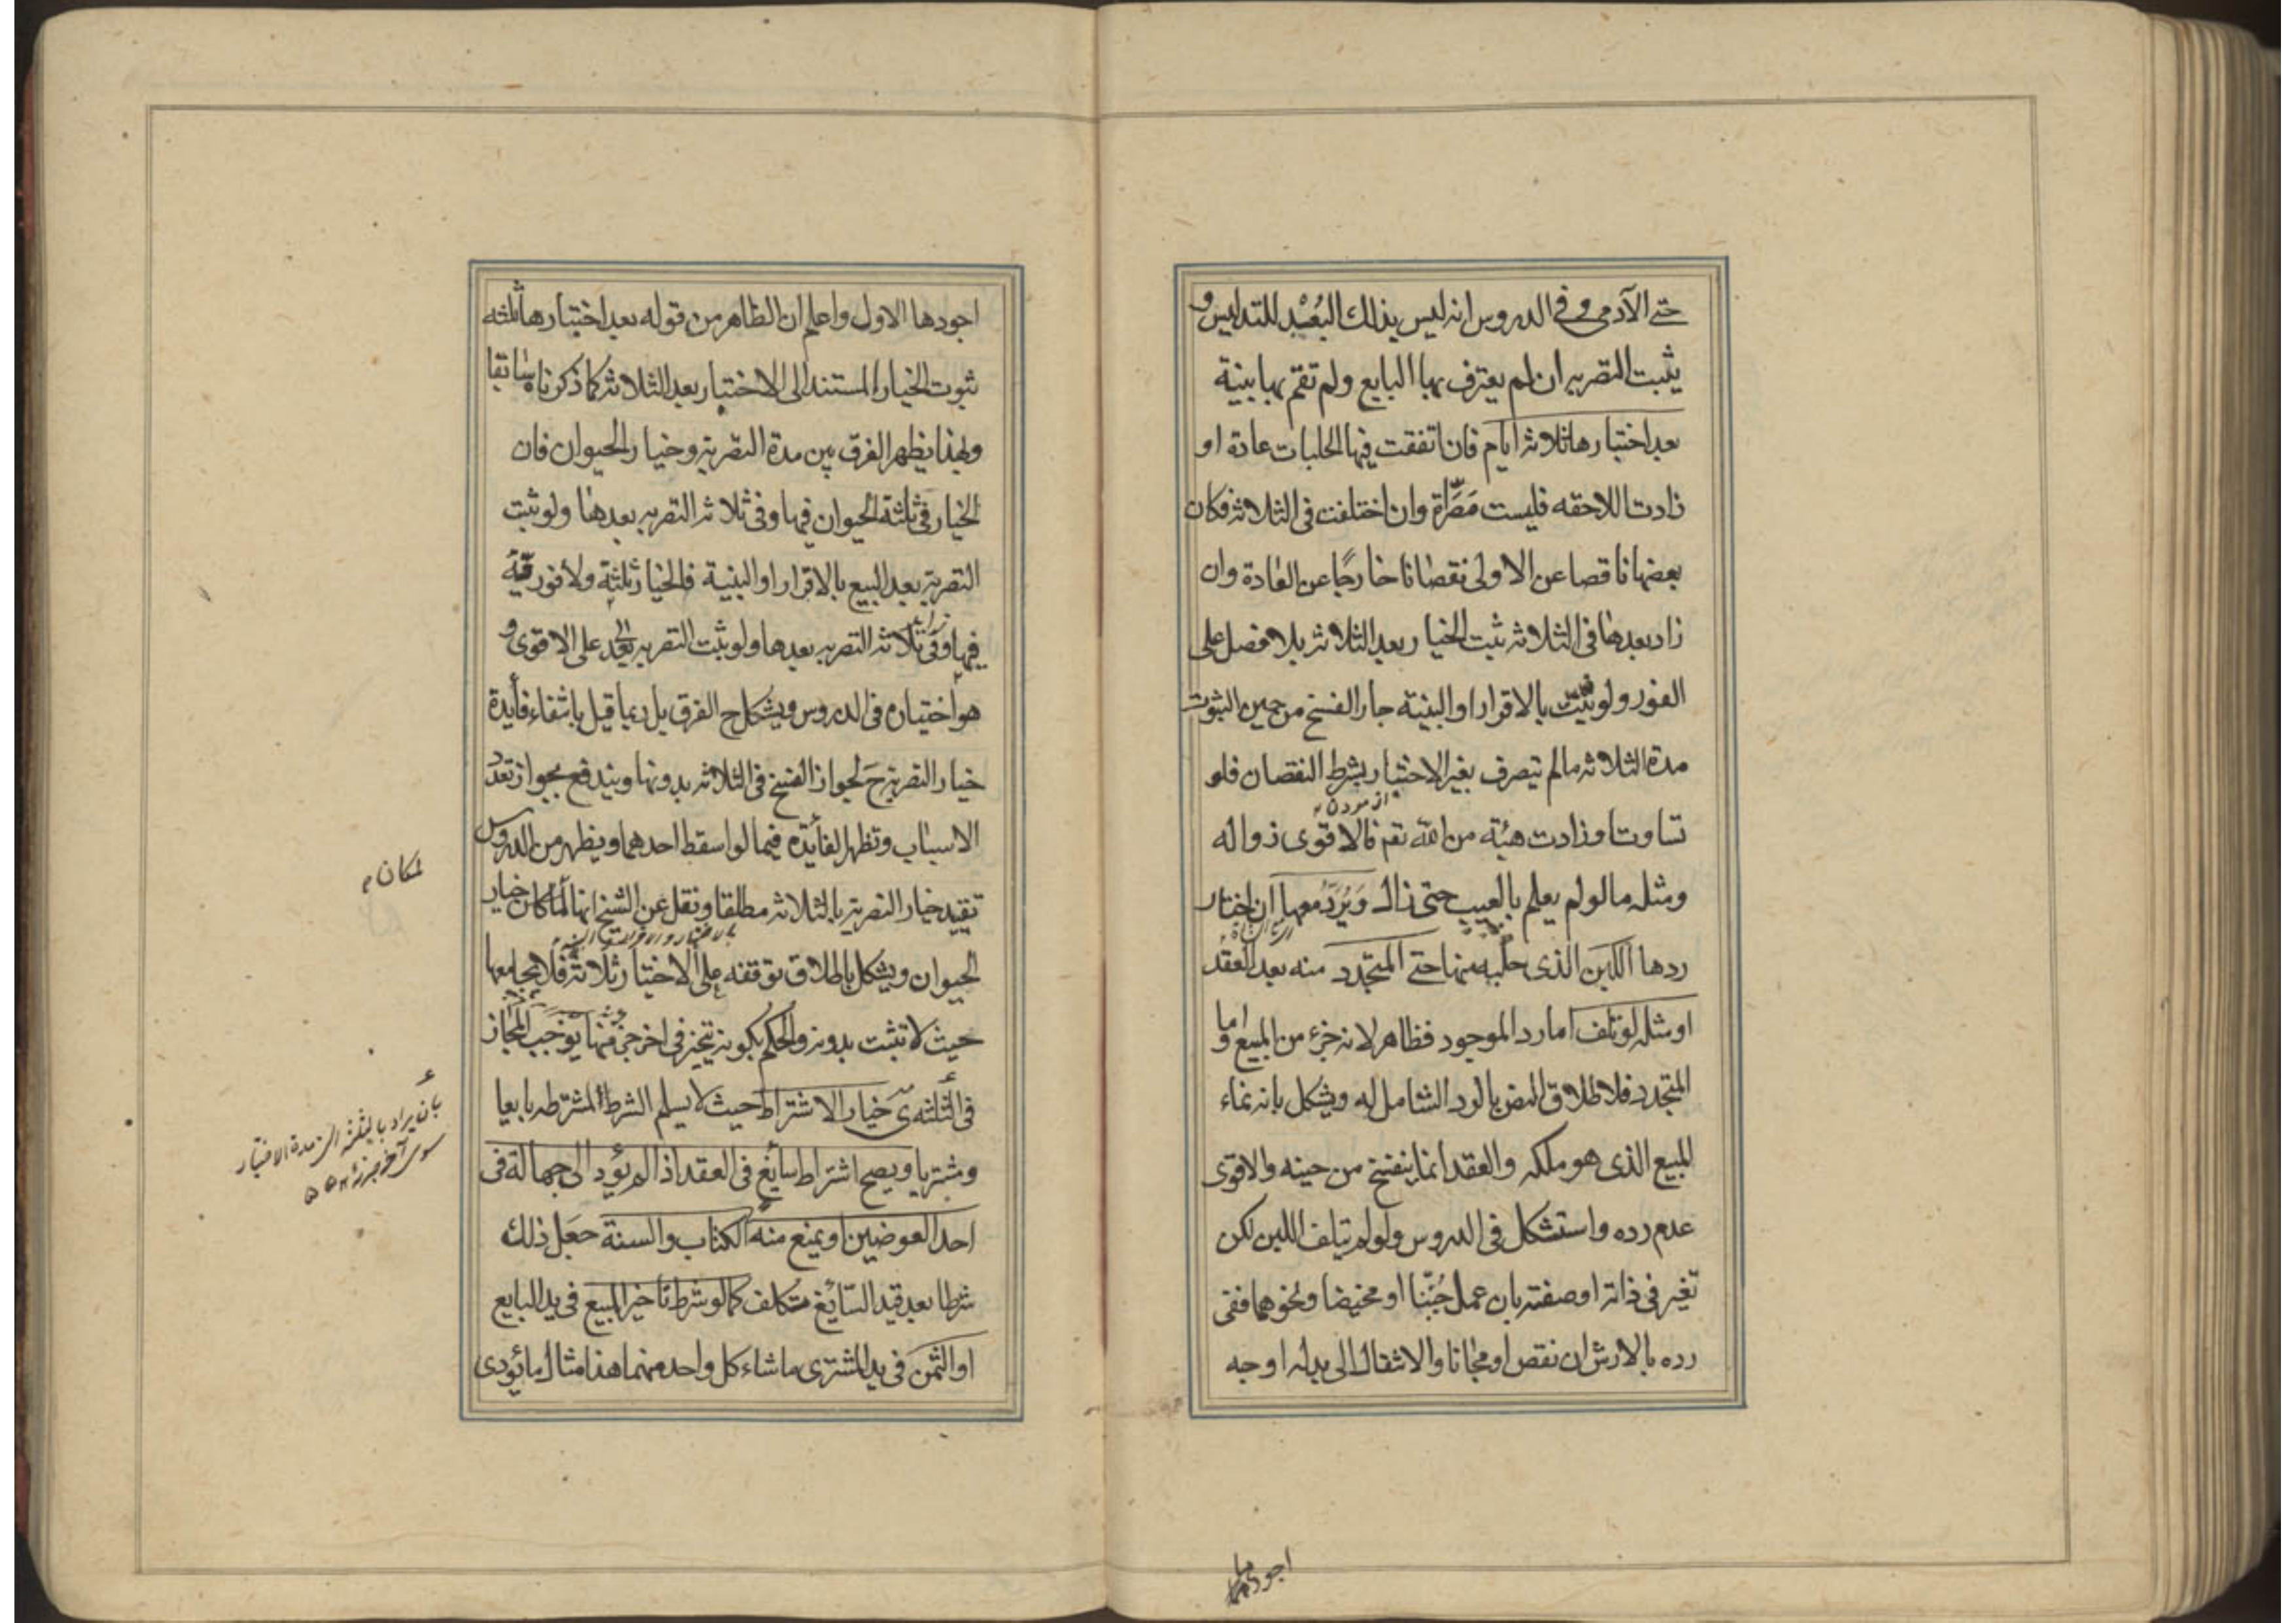 حتى الآدمى وفى الدروس انه ليس بذلك البُعْيد للتدليس و
يثبت التصريه ان لم يعترف بها البايع ولم تقم بها بينة
بعد اختبارها ثلاثه ايام فان اتفقت فيها الحلبات عادة او
زادت اللاحقه فليست مَصَّراة وان اختلفت فى الثلاثه فكان
بعضها ناقصا عن الاولى نقصانا خارجًا عن العادة وان
زاد بعدها فى الثلاثه ثبت الخيار بعد الثلاثه بلا فصل على
الفور ولو ثبتت بالاقرار او البينة جاز الفسخ من حين الثبوت
مدة الثلاثه مالم يتصرف بغير الاختبار بشرط النقصان فلو
ازمودن
تساوت او زادت هبة من الله تع فالاقوى زواله
ومثله مالو لم يعلم بالعيب حتى زال وَيُرَدُّ معها ان اختار
ردها اللبن الذى حلبه منها حتى المتجدد منه بعد العقد
او مثله لو تلف امارد الموجود فظاهر لانه جزء من المبيع واما
المتجدد فلاطلاق النص بالرد الشامل له ويشكل بانه نماء
المبيع الذى هو ملكه والعقد انما ينفسخ من حينه والاقوى
عدم رده واستشكل فى الدروس ولو لم يتلف اللبن لكن
تغير فى ذاته او صفته بان عمل جُبّنا او مخيضا ونحوهما ففى
رده بالارش ان نقص او مجانا والانتقال الى بدله اوجه
اجودها
اجودها الاول واعلم ان الظاهر من قوله بعد اختبارها ثلثه
ثبوت الخيار المستند الى الاختبار بعد الثلاثه كما ذكرناه سابقا
وبهذا يظهر الفرق بين مدة التصريه وخيار الحيوان فان
الخيار فى ثلثة الحيوان فيها وفى ثلاثه التصريه بعدها ولو ثبت
التصريه بعد البيع بالاقرار او البينة فالخيار ثلثة ولا فورية
فيها وفى ثلاثه التصريه بعدها ولو ثبت التصريه على الاقوى و
هو اختياره فى الدروس ويشكل ح الفرق بل ربما قيل بانتفاء فايدة
خيار التصريه ح لجواز الفسخ فى الثلاثه بدونها ويندفع بجواز تعدد
الاسباب وتظهر الفائدة فيما لو اسقط احدهما ويظهر من الدروس
تقييد خيار التصريه بالثلاثه مطلقا ونقل عن الشيخ انها لمكان خيار
لمكان
الحيوان ويشكل باطلاق توقفه على الاختبار ثلاثة فلا يجامعها
حيث لا تثبت بدونه والحكم بكونه يتخير فى اخر جزء منها يوجب المجاز
فى الثلثه ى خيار الاشتراط حيث لا يسلم الشرط المشترطه بايعا
بان يراد بالثلثه مدة الاختبار
سوى آخر جزء
ومشتريا ويصح اشتراط سايغ فى العقد اذا لم يؤد الى جهالة فى
احد العوضين او يمنع منه الكتاب والسنة جعل ذلك
شرطا بعد قيد السّايغ متكلف كما لو شرط تاخير المبيع فى يد البايع
او الثمن فى يد المشترى ماشاء كل واحد منهما هذا مثال ما يؤدى